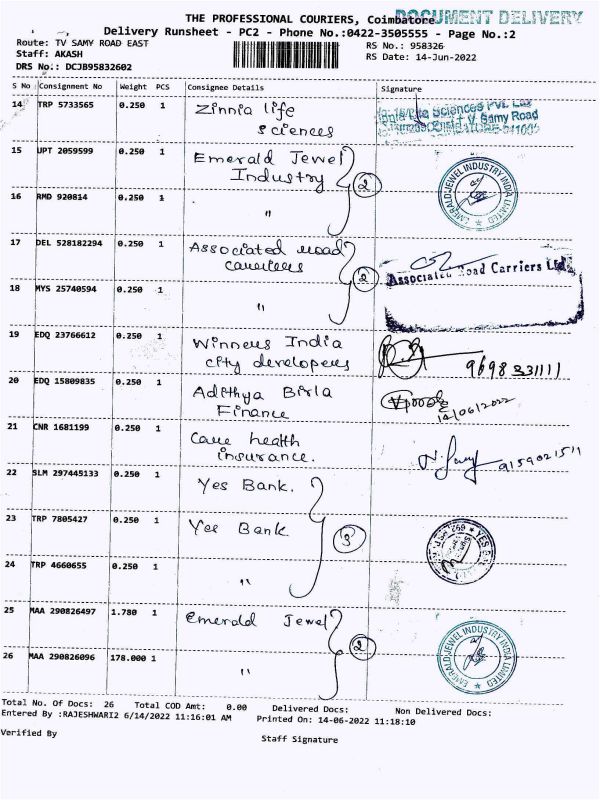 THE PROFESSIONAL COURIERS, Coimbatore
DOCUMENT DELIVERY
Delivery Runsheet - PC2 - Phone No.:0422-3505555 - Page No.:2
Route: TV SAMY ROAD EAST
RS No.: 958326
Staff: AKASH
RS Date: 14-Jun-2022
DRS No.: DCJB95832602
S No Consignment No Weight PCS Consignee Details Signature
14 TRP 5733565 0.250 1 Zinnia life
sciences
Life Sciences Pvt. Ltd
V. Samy Road
15 UPT 2059599 0.250 1 Emerald Jewel
Industry 2
EMERALD JEWEL INDUSTRY INDIA LIMITED
16 RMD 920814 0.250 1 "
17 DEL 528182294 0.250 1 Associated road
carriers 2
Associated Road Carriers Ltd.
18 MYS 25740594 0.250 1 "
19 EDQ 23766612 0.250 1 Winners India
city developers
9698 331111
20 EDQ 15809835 0.250 1 Adithya Birla
Finance
14/06/2022
21 CNR 1681199 0.250 1 Care health
insurance.
9159021511
22 SLM 297445133 0.250 1 Yes Bank.
23 TRP 7805427 0.250 1 Yes Bank 3
24 TRP 4660655 0.250 1 "
25 MAA 290826497 1.780 1 Emerald Jewel
2
EMERALD JEWEL INDUSTRY INDIA LIMITED
26 MAA 290826096 178.000 1 "
Total No. Of Docs: 26 Total COD Amt: 0.00 Delivered Docs: Non Delivered Docs:
Entered By :RAJESHWARI2 6/14/2022 11:16:01 AM Printed On: 14-06-2022 11:18:10
Verified By
Staff Signature